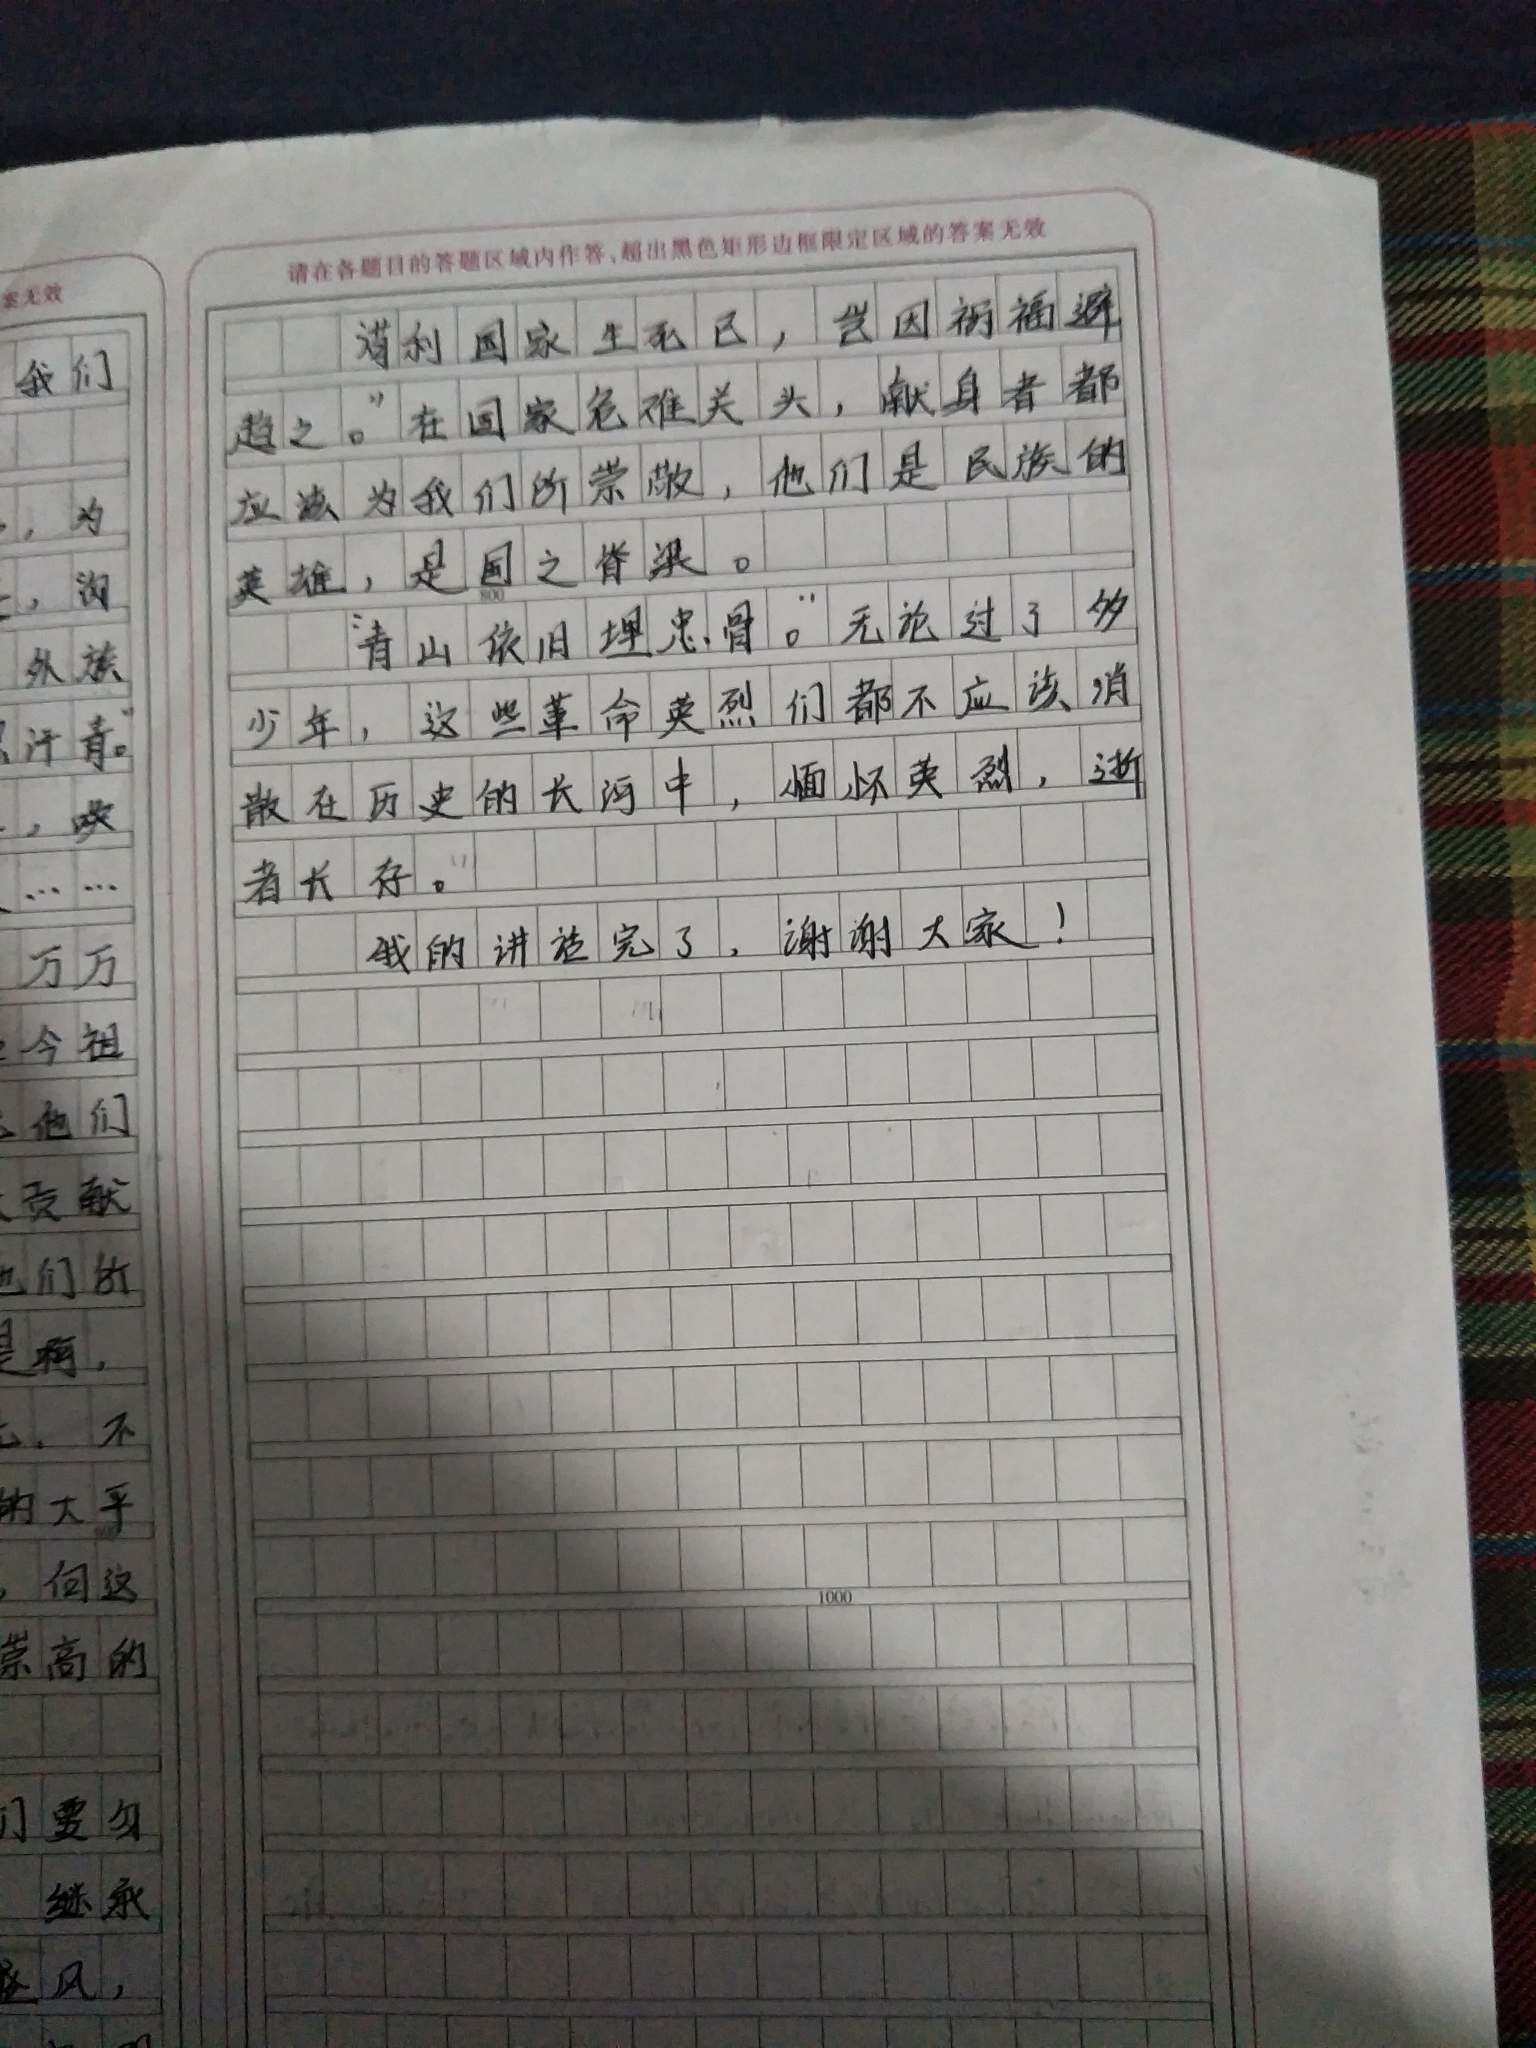 案无效
我们
，为
，沟
外族
汗青。”
，唤
……
万万
今祖
他们
贡献
他们所
是啊，
，不
的大乎
，但这
崇高的
们要勿
继承
风，
请在各题目的答题区域内作答，超出黑色矩形边框限定区域的答案无效
利国家生死已，岂因祸福避
趋之。”在国家危难关头，献身者都
应该为我们所崇敬，他们是民族的
英雄，是国之脊梁。
800
“青山依旧埋忠骨。”无论过了多
少年，这些革命英烈们都不应该消
散在历史的长河中，缅怀英烈，逝
者长存。”
我的讲话完了，谢谢大家！
1000